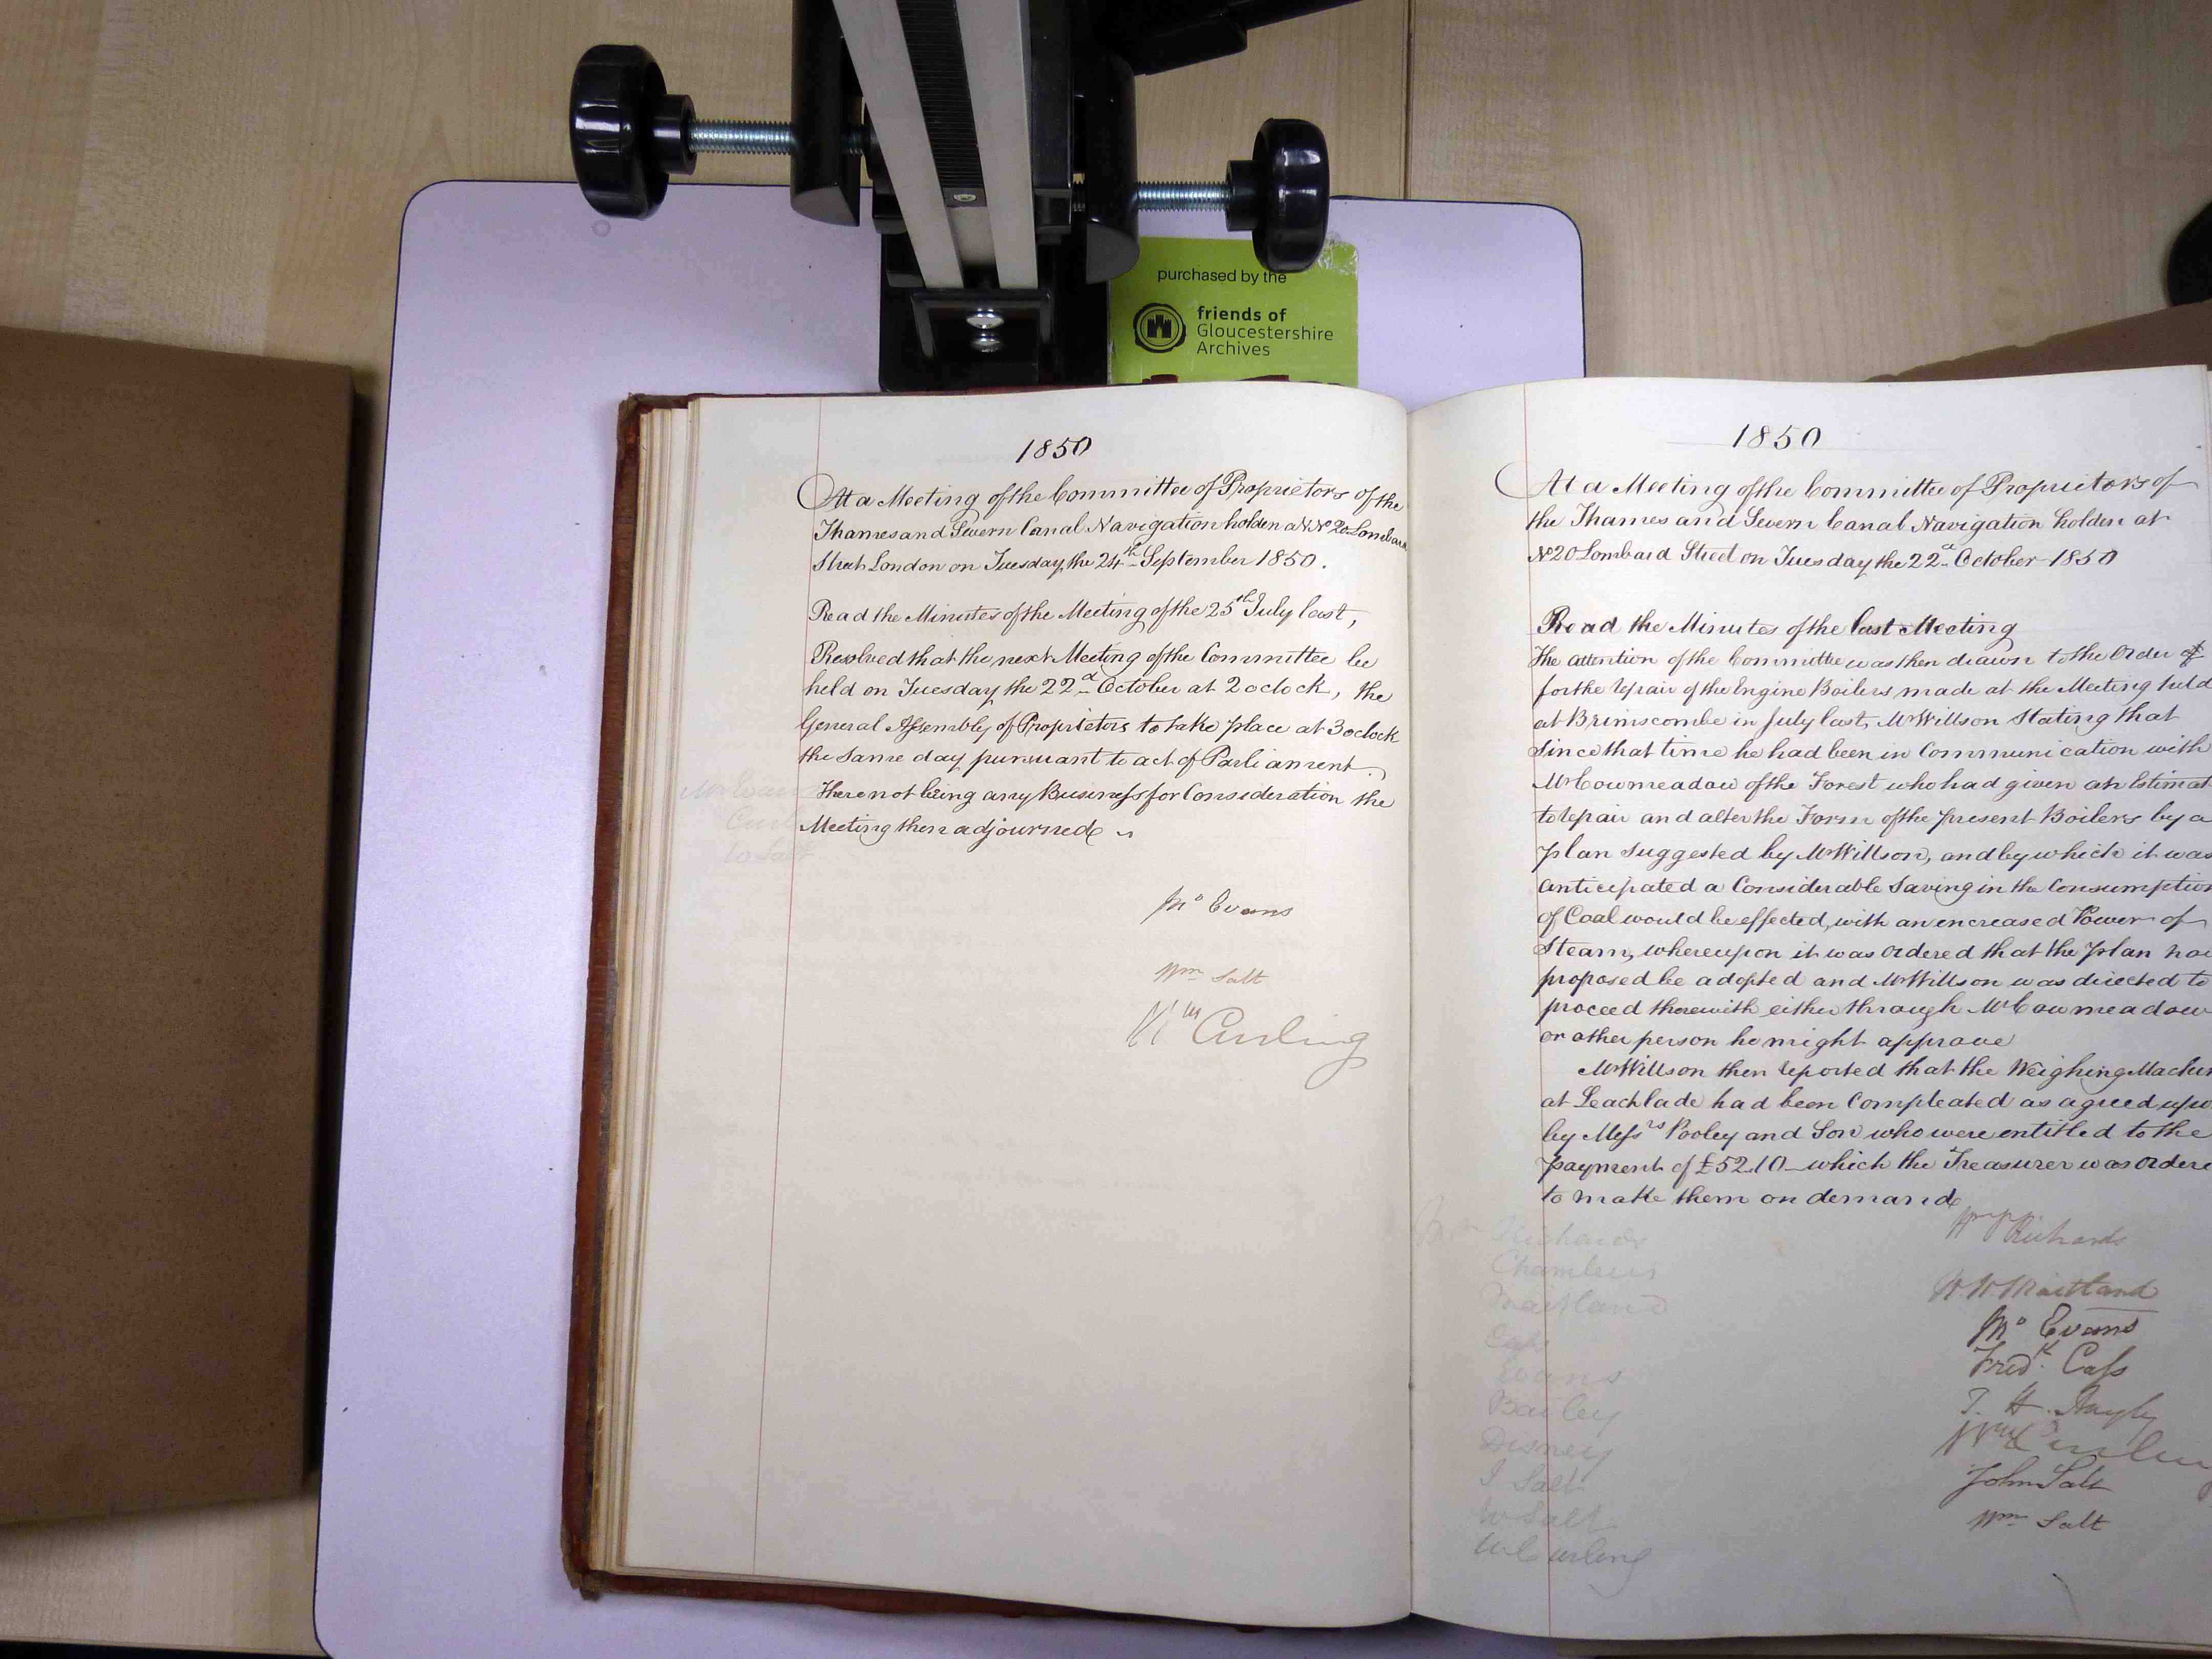 purchased by the
friends of
Gloucestershire
Archives
1850
At a Meeting of the Committee of Proprietors of the
Thames and Severn Canal Navigation holden at No 20 Lombard
Street London on Tuesday the 24th September 1850.
Read the Minutes of the Meeting of the 25th July last,
Resolved that the next Meeting of the Committee be
held on Tuesday the 22d October at 2 oclock, the
General Assembly of Proprietors to take place at 3 oclock
the same day pursuant to act of Parliament.
There not being any Business for Consideration the
Meeting then adjourned
Mr Evans
Curl
W Salt
Mo Evans
Wm Salt
Wm Curling
1850
At a Meeting of the Committee of Proprietors of
the Thames and Severn Canal Navigation holden at
No 20 Lombard Street on Tuesday the 22d October 1850
Read the Minutes of the last Meeting
The attention of the Committee was then drawn to the Order of
for the repair of the Engine Boilers made at the Meeting held
at Brimscombe in July last, Mr Willson Stating that
Since that time he had been in Communication with
Mr Cowmeadow of the Forest who had given an Estimat
to repair and alter the Form of the present Boilers by a
plan suggested by Mr Willson, and by which it was
anticipated a Considerable Saving in the Consumption
of Coal would be effected, with an encreased Power of
Steam, whereupon it was Ordered that the plan
proposed be adopted and Mr Willson was directed to
proceed therewith either through Mr Cowmeadow
or other person he might approve
Mr Willson then reported that the Weighing Machin
at Leachlade had been Compleated as agreed upo
by Messrs Pooley and Son who were entitled to the
payment of £52.10 which the Treasurer was Ordere
to make them on demand
Richards
Chambers
Maitland
Cass
Evans
Bayley
Disney
J Salt
W Salt
W Curling
Richards
W. W. Maitland
Mo Evans
Fredk. Cass
T. H.
Wm Curling
John Salt
Wm Salt